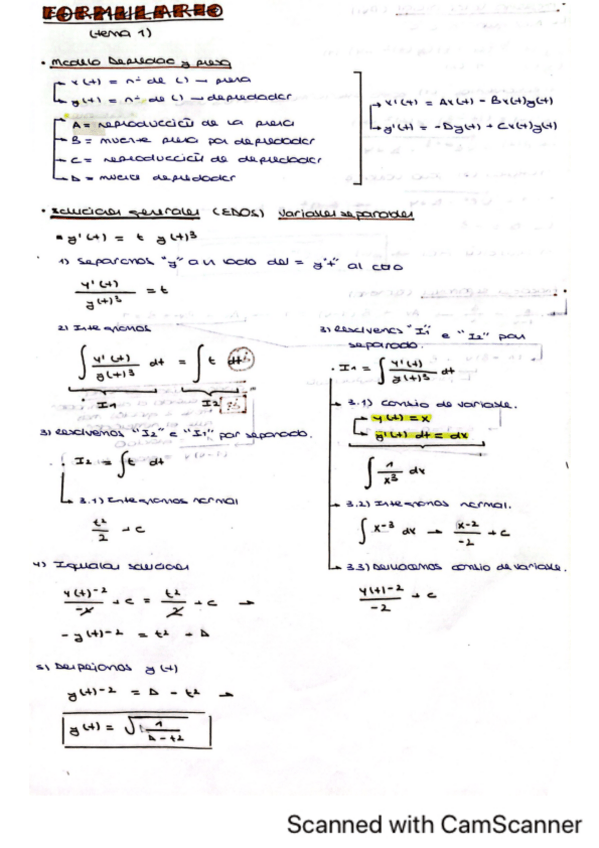 FORMULARIO
(tema 1)
• Modelo Depredador y presa
x(t) = nº de ( ) → presa
y(t) = nº de ( ) → depredador
x'(t) = Ax(t) - Bx(t)y(t)
y'(t) = -Dy(t) + Cx(t)y(t)
A = reproducción de la presa
B = muerte presa por depredador
C = reproducción de depredador
D = muerte depredador
• Soluciones generales (EDOS) variables separadas
y'(t) = t y(t)³
1) separamos "y" a un lado del = y "t" al otro
y'(t) / y(t)³ = t
2) Integramos
∫ y'(t) / y(t)³ dt = ∫ t dt
I1 I2
3) Resolvemos "I2" e "I1" por separado.
I2 = ∫ t dt
3.1) Integramos normal
t²/2 + c
3) resolvemos "I1" e "I2" por
separado.
I1 = ∫ y'(t) / y(t)³ dt
3.1) cambio de variable.
y(t) = x
y'(t) dt = dx
∫ 1/x³ dx
3.2) Integramos normal.
∫ x-3 dx → x-2 / -2 + c
3.3) Deshacemos cambio de variable.
y(t)-2 / -2 + c
4) Igualar soluciones
y(t)-2 / -2 + c = t²/2 + c →
- y(t)-2 = t² + D
5) Despejamos y(t)
y(t)-2 = D - t² →
y(t) = √ 1 / D - t2
Scanned with CamScanner